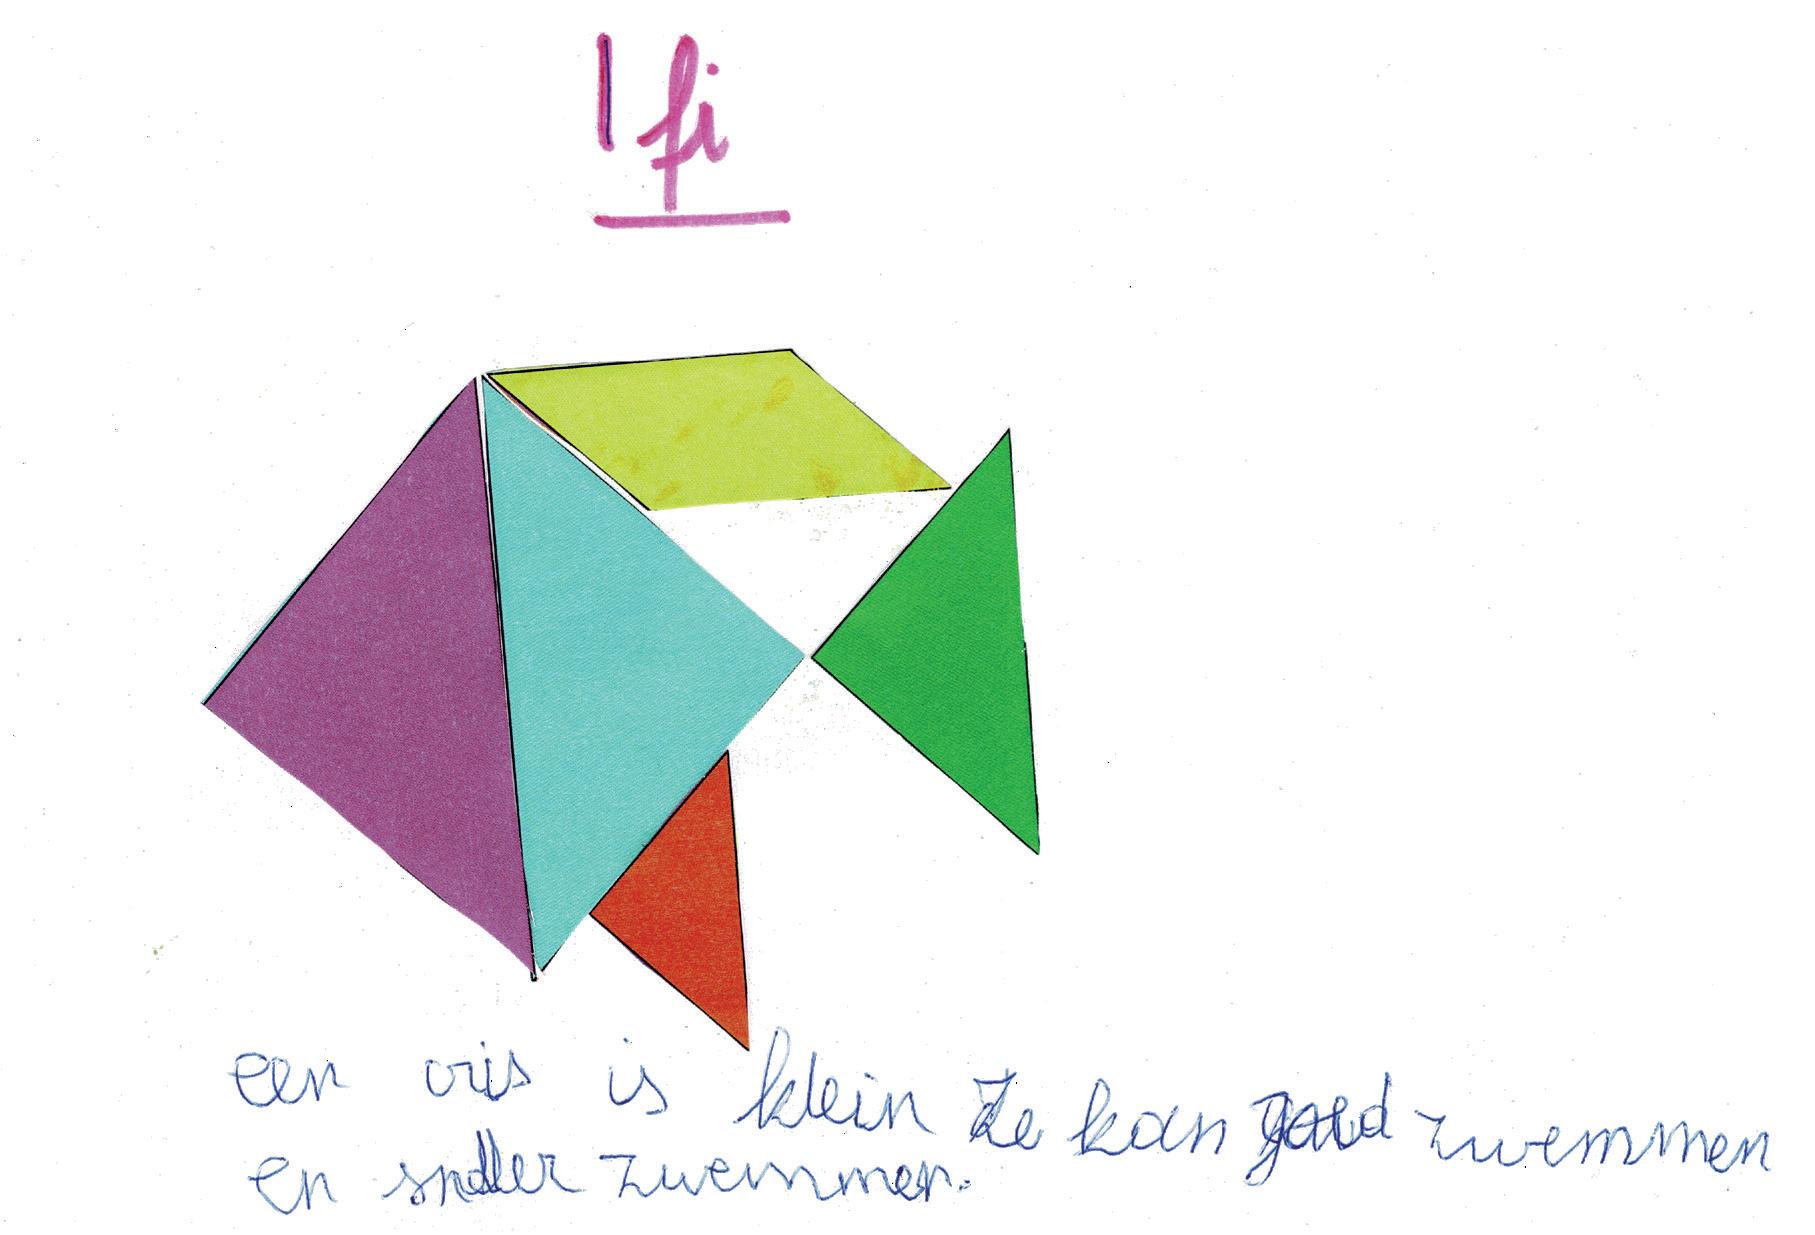 1 fi
een vris is klein Ze kan goed zwemmen
en sneller zwemmen.